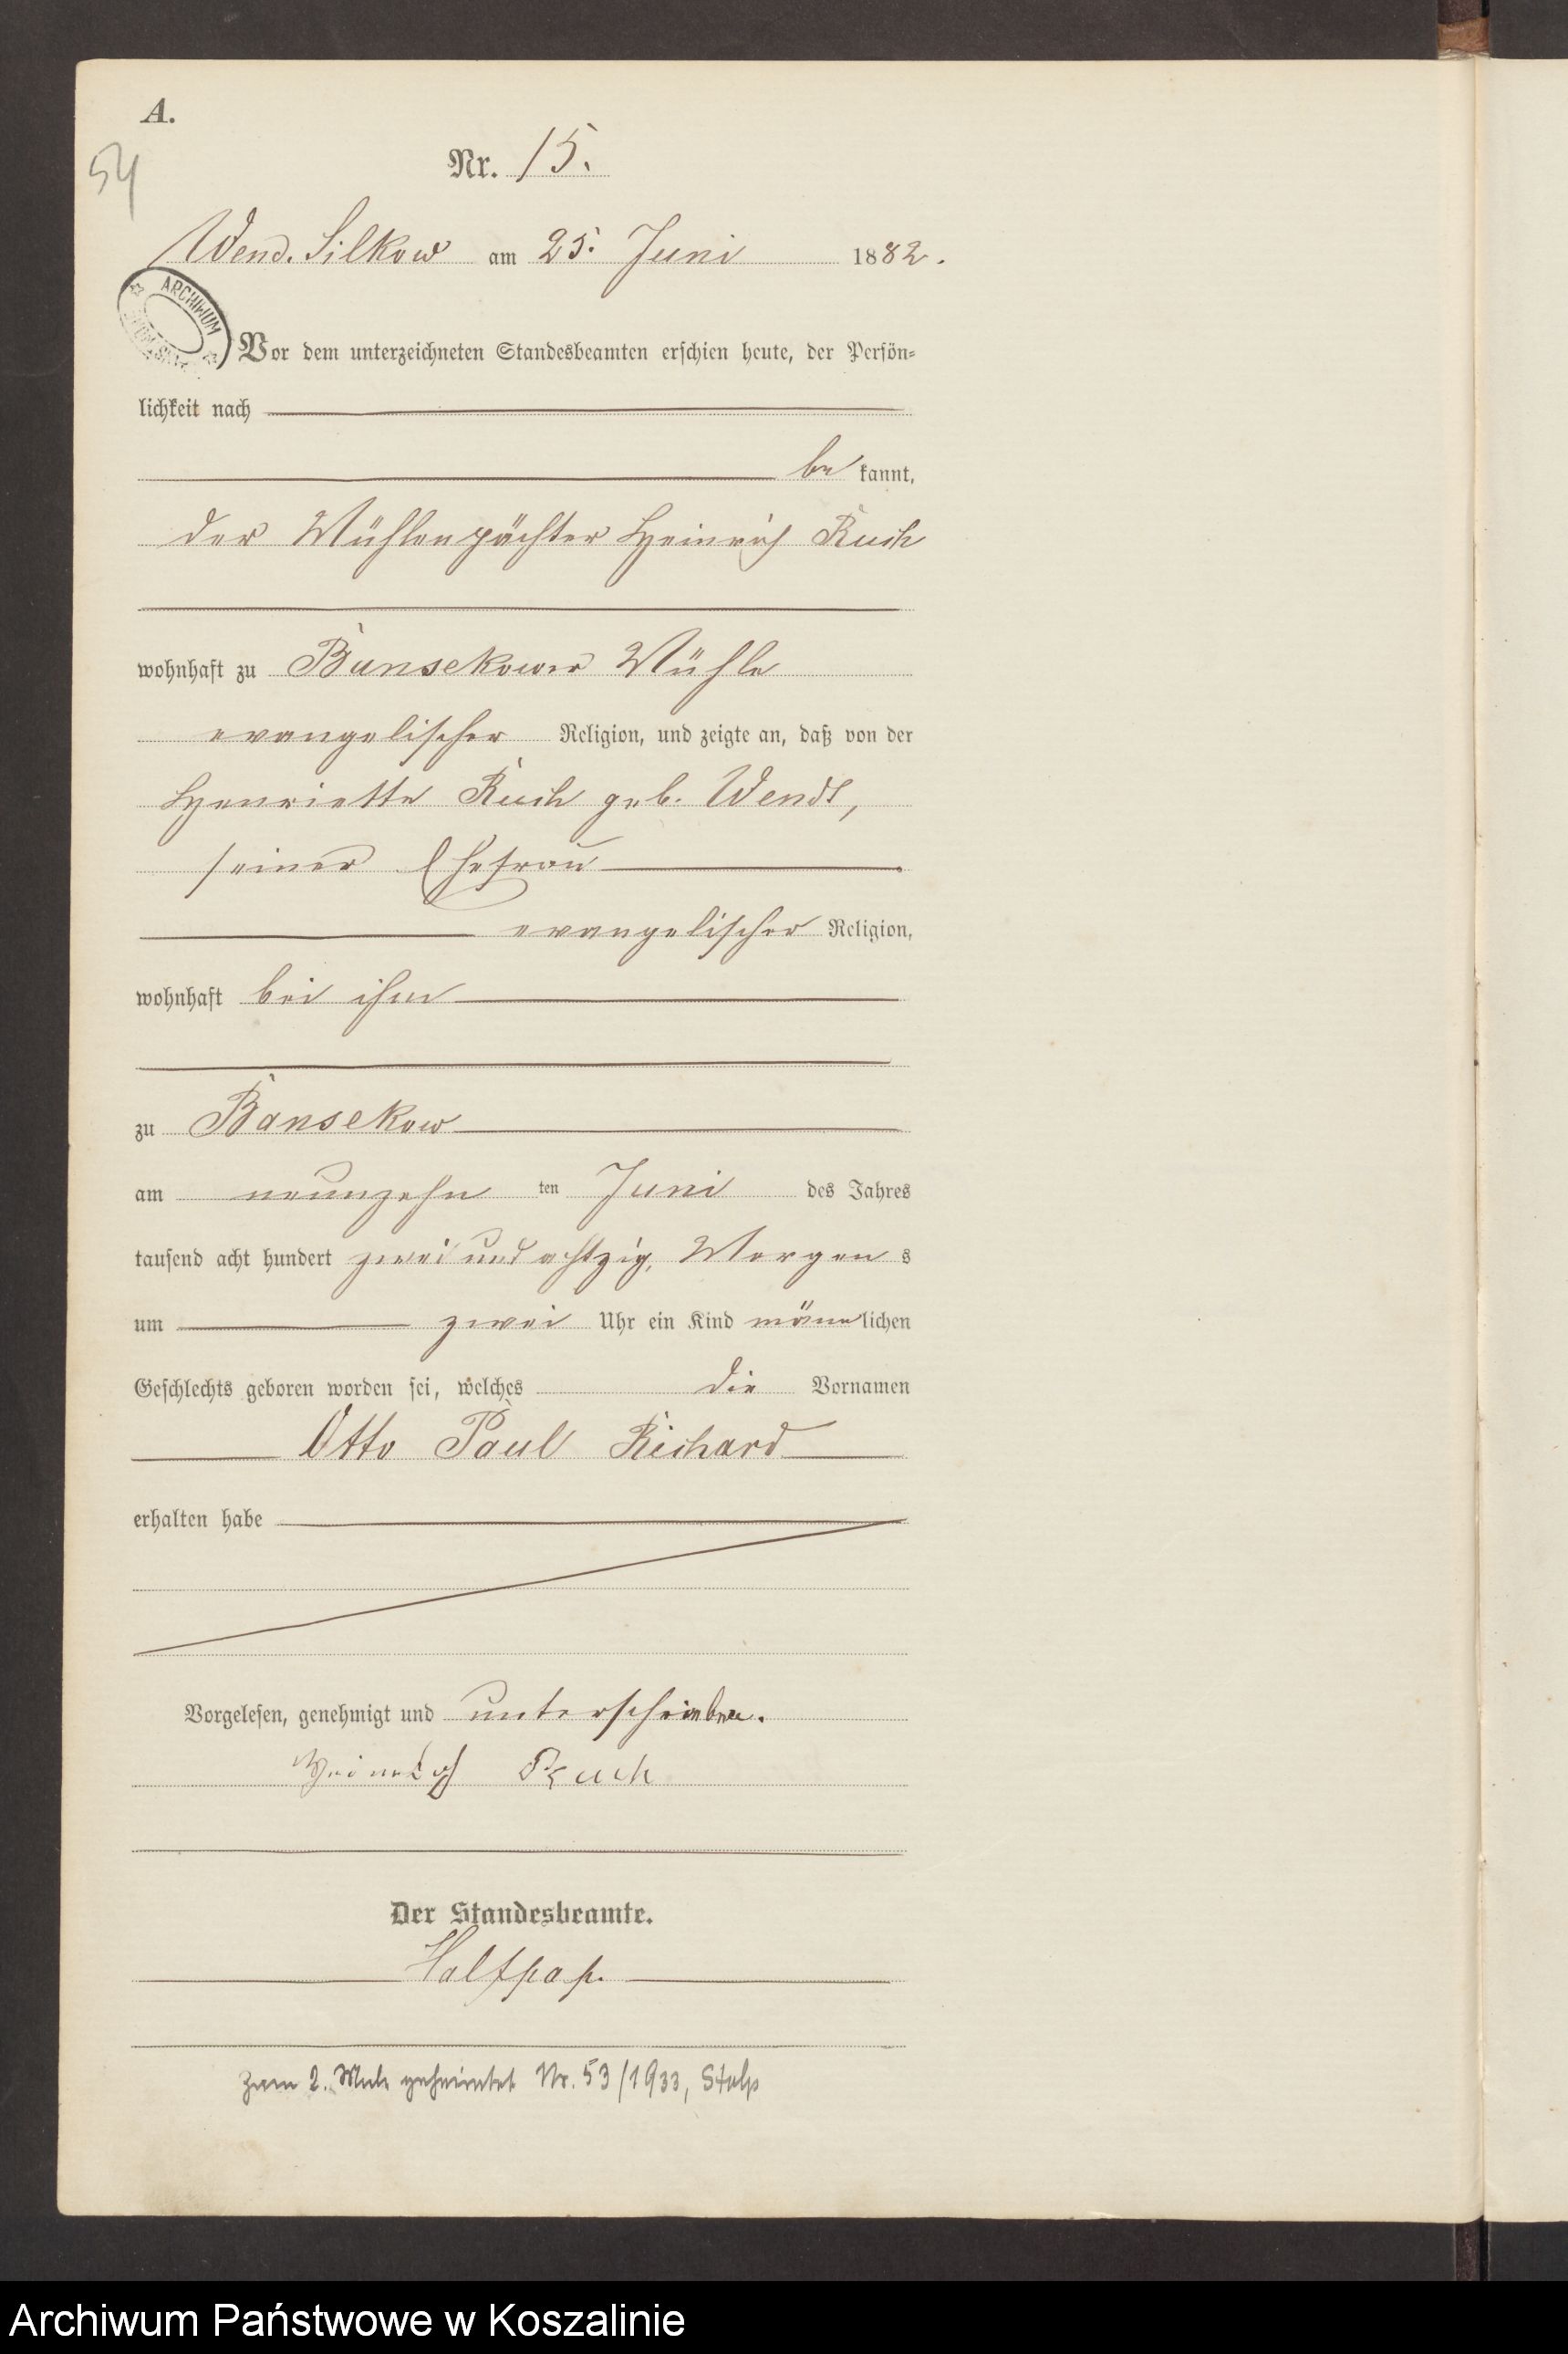 A.
54
Nr. 15.
Wend. Silkow am 25. Juni 1882.
ARCHIWUM
Vor dem unterzeichneten Standesbeamten erschien heute, der Persön-
lichkeit nach
be kannt,
der Mühlenpächter Heinrich Ruch
wohnhaft zu Bansekower Mühle
evangelischer Religion, und zeigte an, daß von der
Henriette Ruch geb. Wendt,
seiner Ehefrau
evangelischer Religion,
wohnhaft bei ihm
zu Bansekow
am neunzehn ten Juni des Jahres
tausend acht hundert zwei und achtzig, Morgen s
um zwei Uhr ein Kind männlichen
Geschlechts geboren worden sei, welches die Vornamen
Otto Paul Richard
erhalten habe
Vorgelesen, genehmigt und unterschrieben.
Heinrich Ruch
Der Standesbeamte.
Halfpap.
Zum 2. Male geheiratet Nr. 53/1933, Stolp
Archiwum Państwowe w Koszalinie